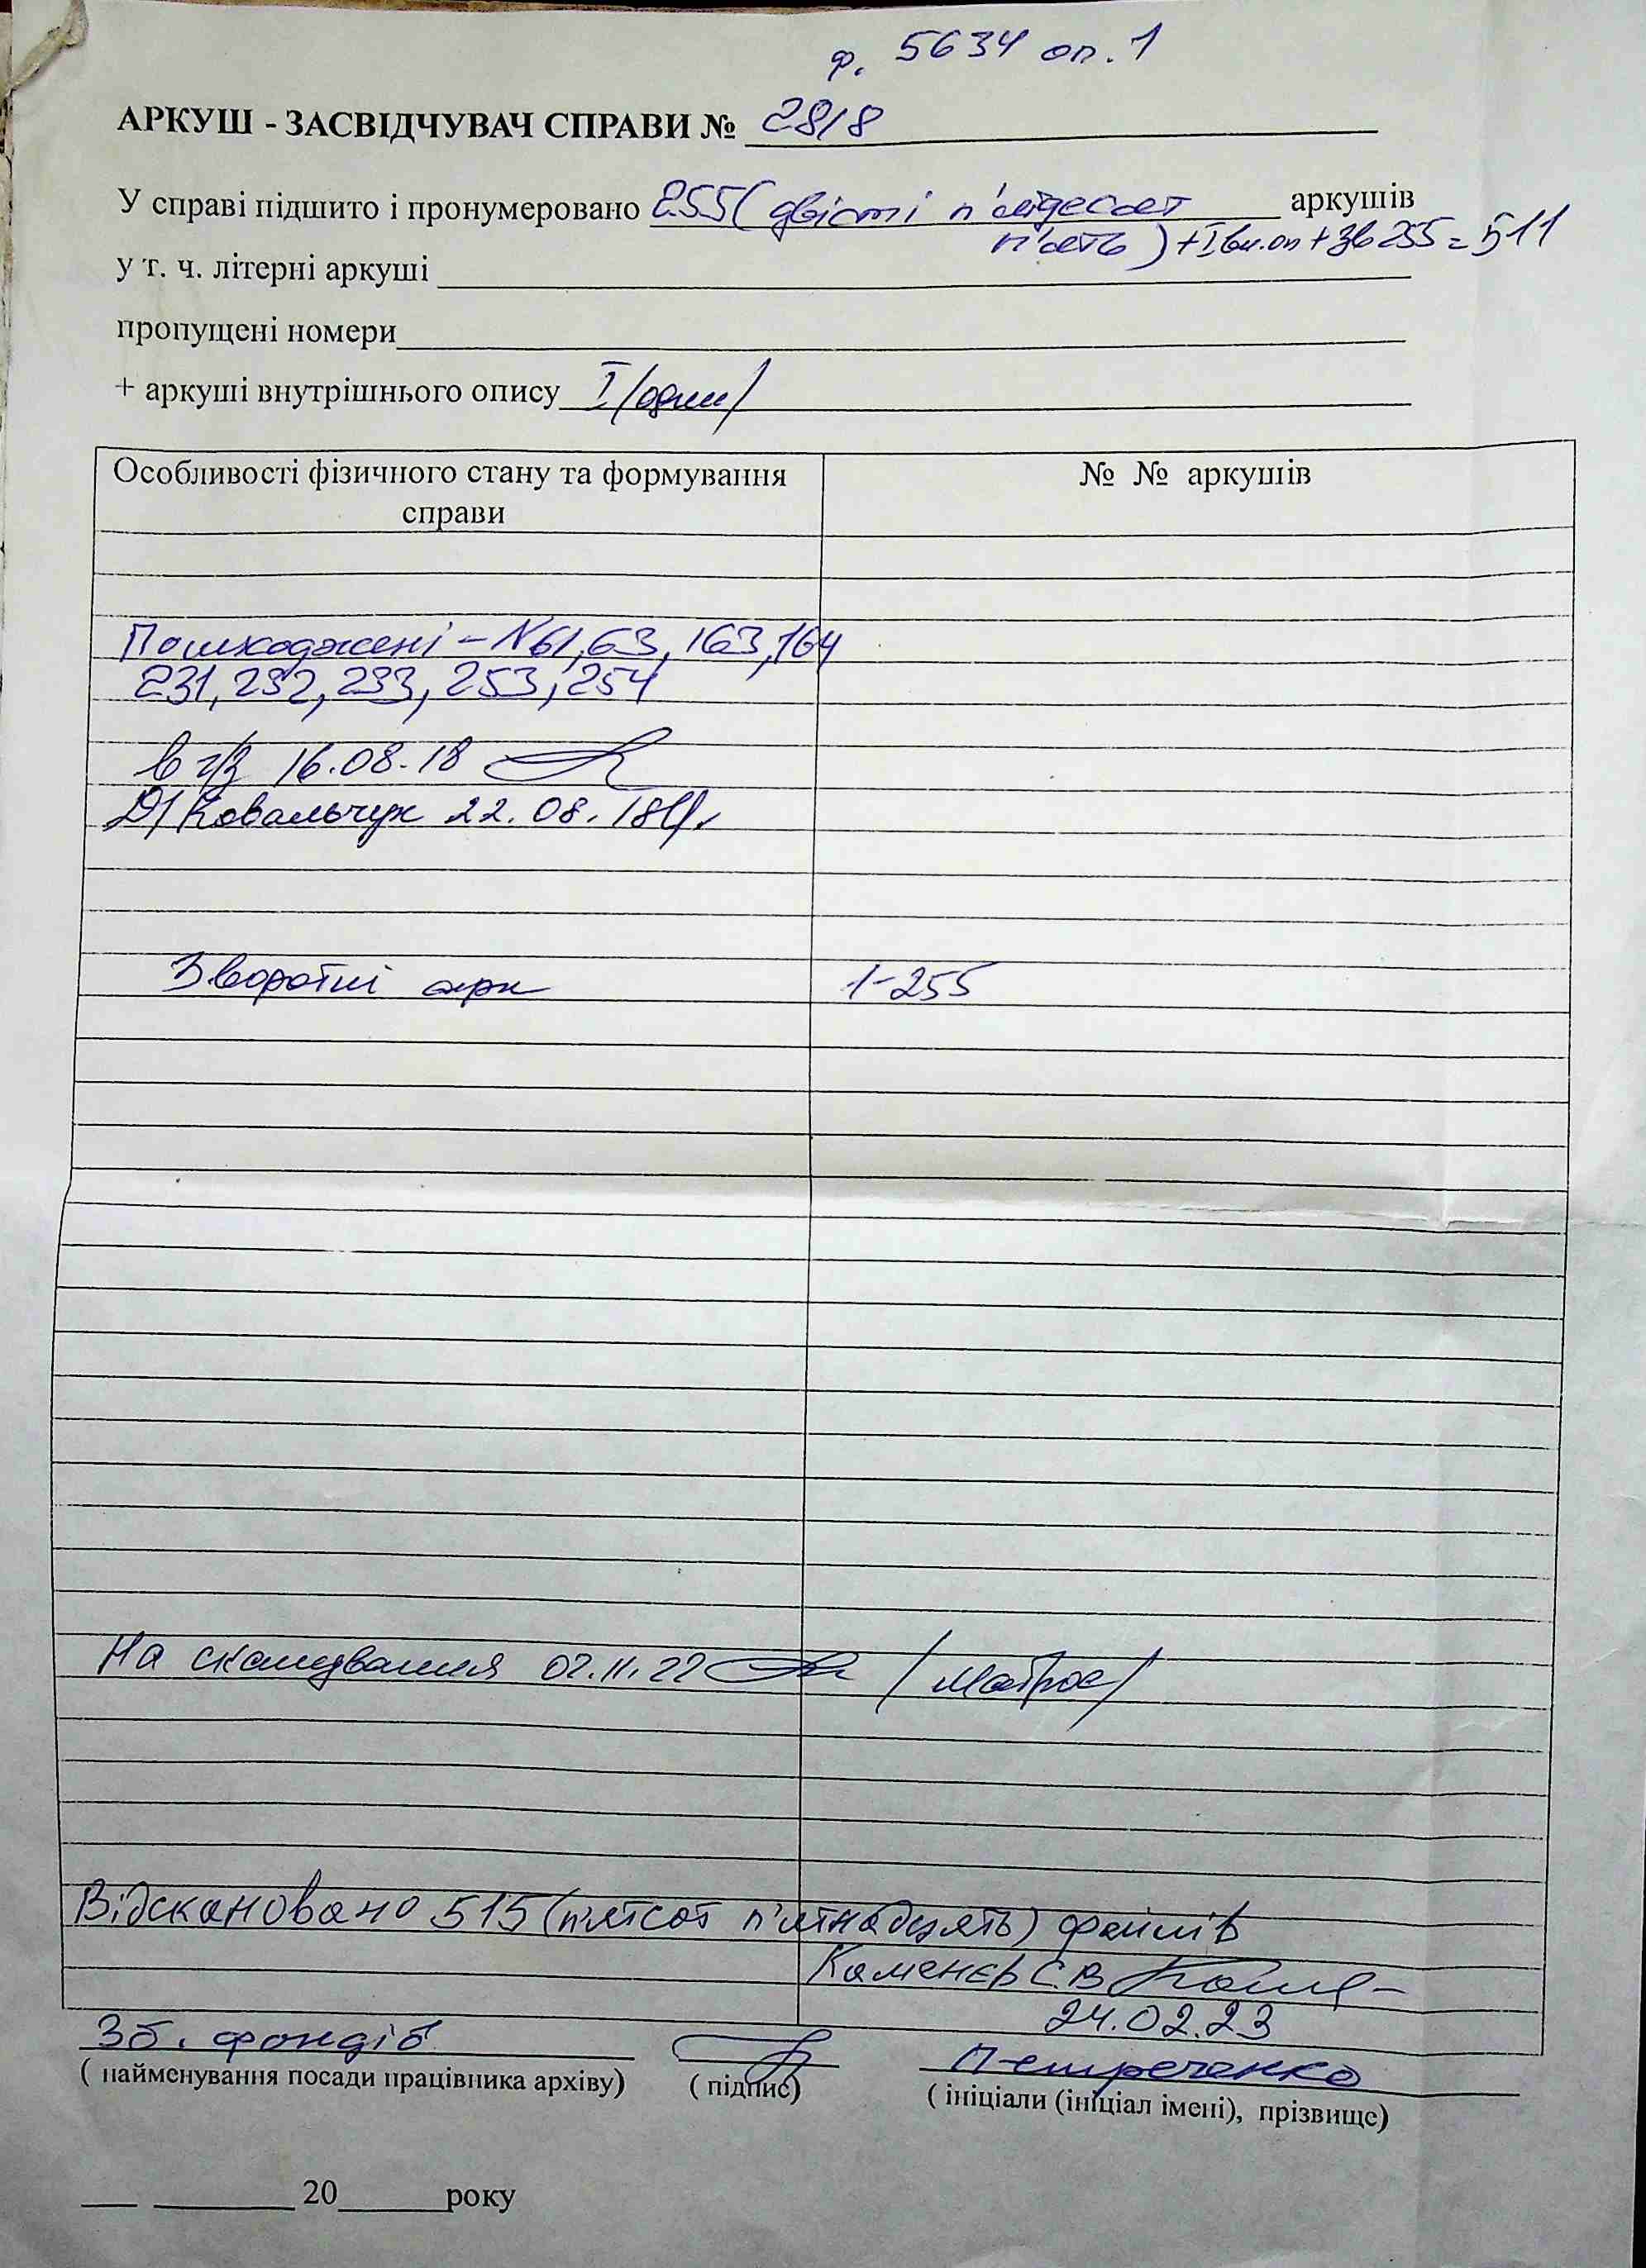 ф. 5634 оп. 1
АРКУШ - ЗАСВІДЧУВАЧ СПРАВИ № 2818
У справі підшито і пронумеровано 255 ( двісті п'ятдесят аркушів
п'ять ) + I вн.оп + Зв 255 = 511
у т. ч. літерні аркуші
пропущені номери
+ аркуші внутрішнього опису I /один/
Особливості фізичного стану та формування № № аркушів
справи
Пошкоджені - N 61, 63, 163, 164
231, 232, 233, 253, 254
в ч/з 16.08.18
Ковальчук 22. 08. 18
Зворотні арк 1-255
На сканування 02.11.22 / Матрос /
Відскановано 515 (п'ятсот п'ятнадцять) файлів
Каменєр С.В
24.02.23
Зб. фондів Петреченко
( найменування посади працівника архіву) ( підпис) ( ініціали (ініціал імені), прізвище)
20 року